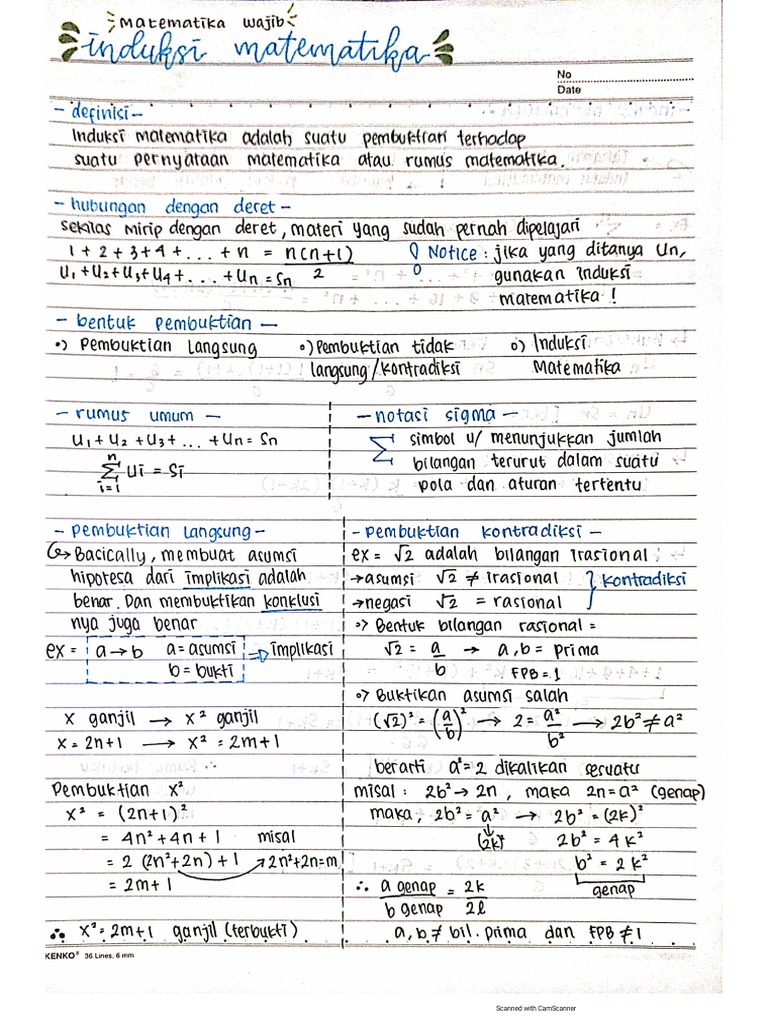 Matematika wajib
induksi matematika
No
Date
- definisi -
Induksi matematika adalah suatu pembuktian terhadap
suatu pernyataan matematika atau rumus matematika.
- hubungan dengan deret -
Sekilas mirip dengan deret, materi yang sudah pernah dipelajari
1 + 2 + 3 + 4 + ... + n = n(n+1)/2
Notice : jika yang ditanya Un,
U₁ + U₂ + U₃ + U₄ + ... + Un = Sn
gunakan induksi
matematika !
- bentuk pembuktian -
•) Pembuktian Langsung
•) Pembuktian tidak
langsung / kontradiksi
•) Induksi
Matematika
- rumus umum -
U₁ + U₂ + U₃ + ... + Un = Sn
n
∑ Ui = Si
i=i
- notasi sigma -
∑ simbol u/ menunjukkan jumlah
bilangan terurut dalam suatu
pola dan aturan tertentu
- Pembuktian langsung -
↪ Basically, membuat asumsi
hipotesa dari implikasi adalah
benar. Dan membuktikan konklusi
nya juga benar
ex = a → b a = asumsi ⇒ implikasi
b = bukti
x ganjil → x² ganjil
x = 2n+1 → x² = 2m+1
Pembuktian x²
x² = (2n+1)²
= 4n² + 4n + 1 misal
= 2 (2n²+2n) + 1 → 2n²+2n=m
= 2m+1
∴ x² = 2m+1 ganjil (terbukti)
- pembuktian kontradiksi -
ex = √2 adalah bilangan irasional
→ asumsi √2 ≠ irasional } kontradiksi
→ negasi √2 = rasional
•> Bentuk bilangan rasional =
√2 = a/b → a, b = prima
FPB = 1
•> Buktikan asumsi salah
(√2)² = (a/b)² → 2 = a²/b² → 2b² ≠ a²
berarti a² = 2 dikalikan sesuatu
misal : 2b² → 2n , maka 2n = a² (genap)
maka, 2b² = a² → 2b² = (2k)²
(2k)² 2b² = 4k²
b² = 2k²
genap
∴ a genap / b genap = 2k / 2l
a, b ≠ bil. prima dan FPB ≠ 1
KENKO® 36 Lines, 6 mm
Scanned with CamScanner